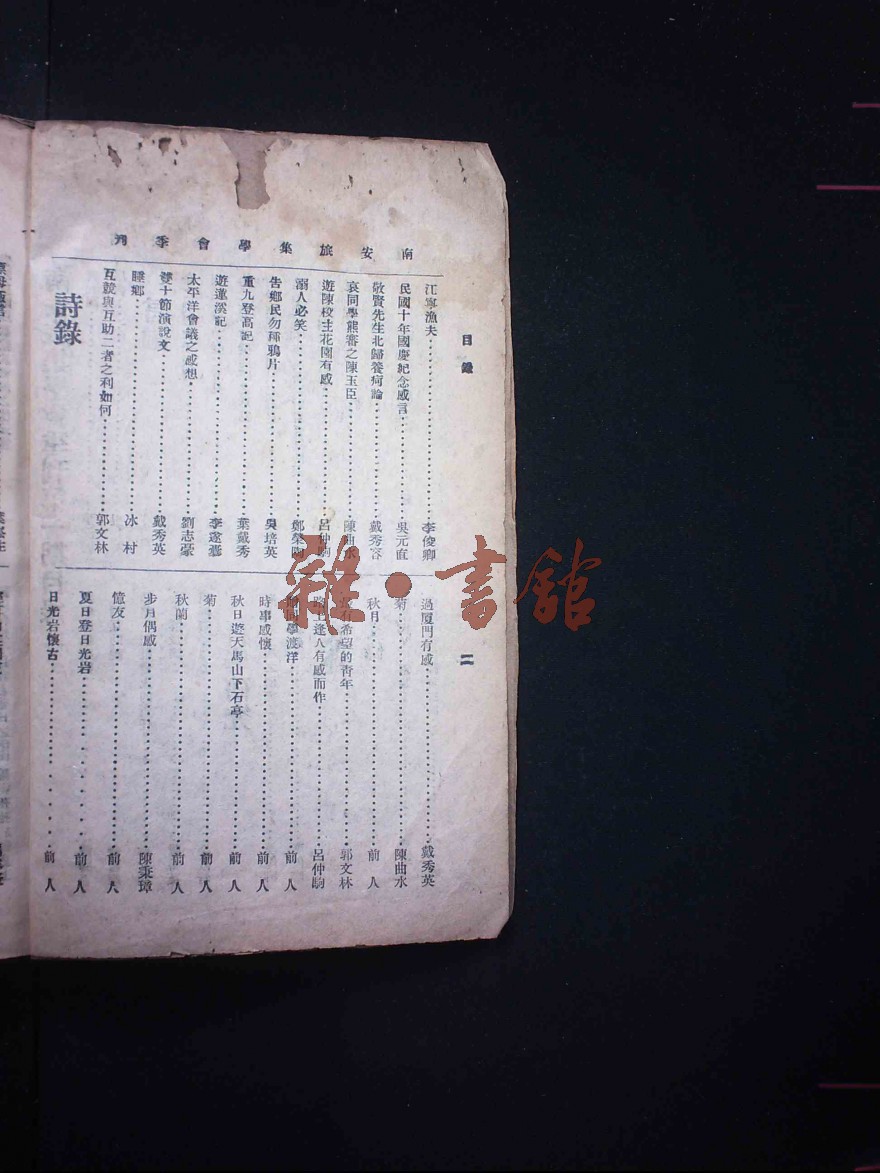 南安旅集學會季刊
目錄
二
江寧漁夫……李俊卿
民國十年國慶紀念感言……吳元直
敬賢先生北歸養疴論……戴秀容
哀同學熊審之陳玉臣……陳曲水
遊陳校主花園有感……呂仲駒
溺人必笑……鄭榮
告鄉民勿種鴉片……吳培英
重九登高記……葉戴秀
遊蓮溪記……李遂
太平洋會議之感想……劉志蒙
雙十節演說文……戴秀英
睡鄉……冰村
互競與互助二者之利如何……郭文林
詩錄
過厦門有感……戴秀英
菊……陳曲水
秋月……前人
有希望的青年……郭文林
路上逢人有感而作……呂仲駒
同學渡洋……前人
時事感懷……前人
秋日遊天馬山下石亭……前人
菊……前人
秋蘭……前人
步月偶感……陳秉璋
憶友……前人
夏日登日光岩……前人
日光岩懷古……前人
雜·書館